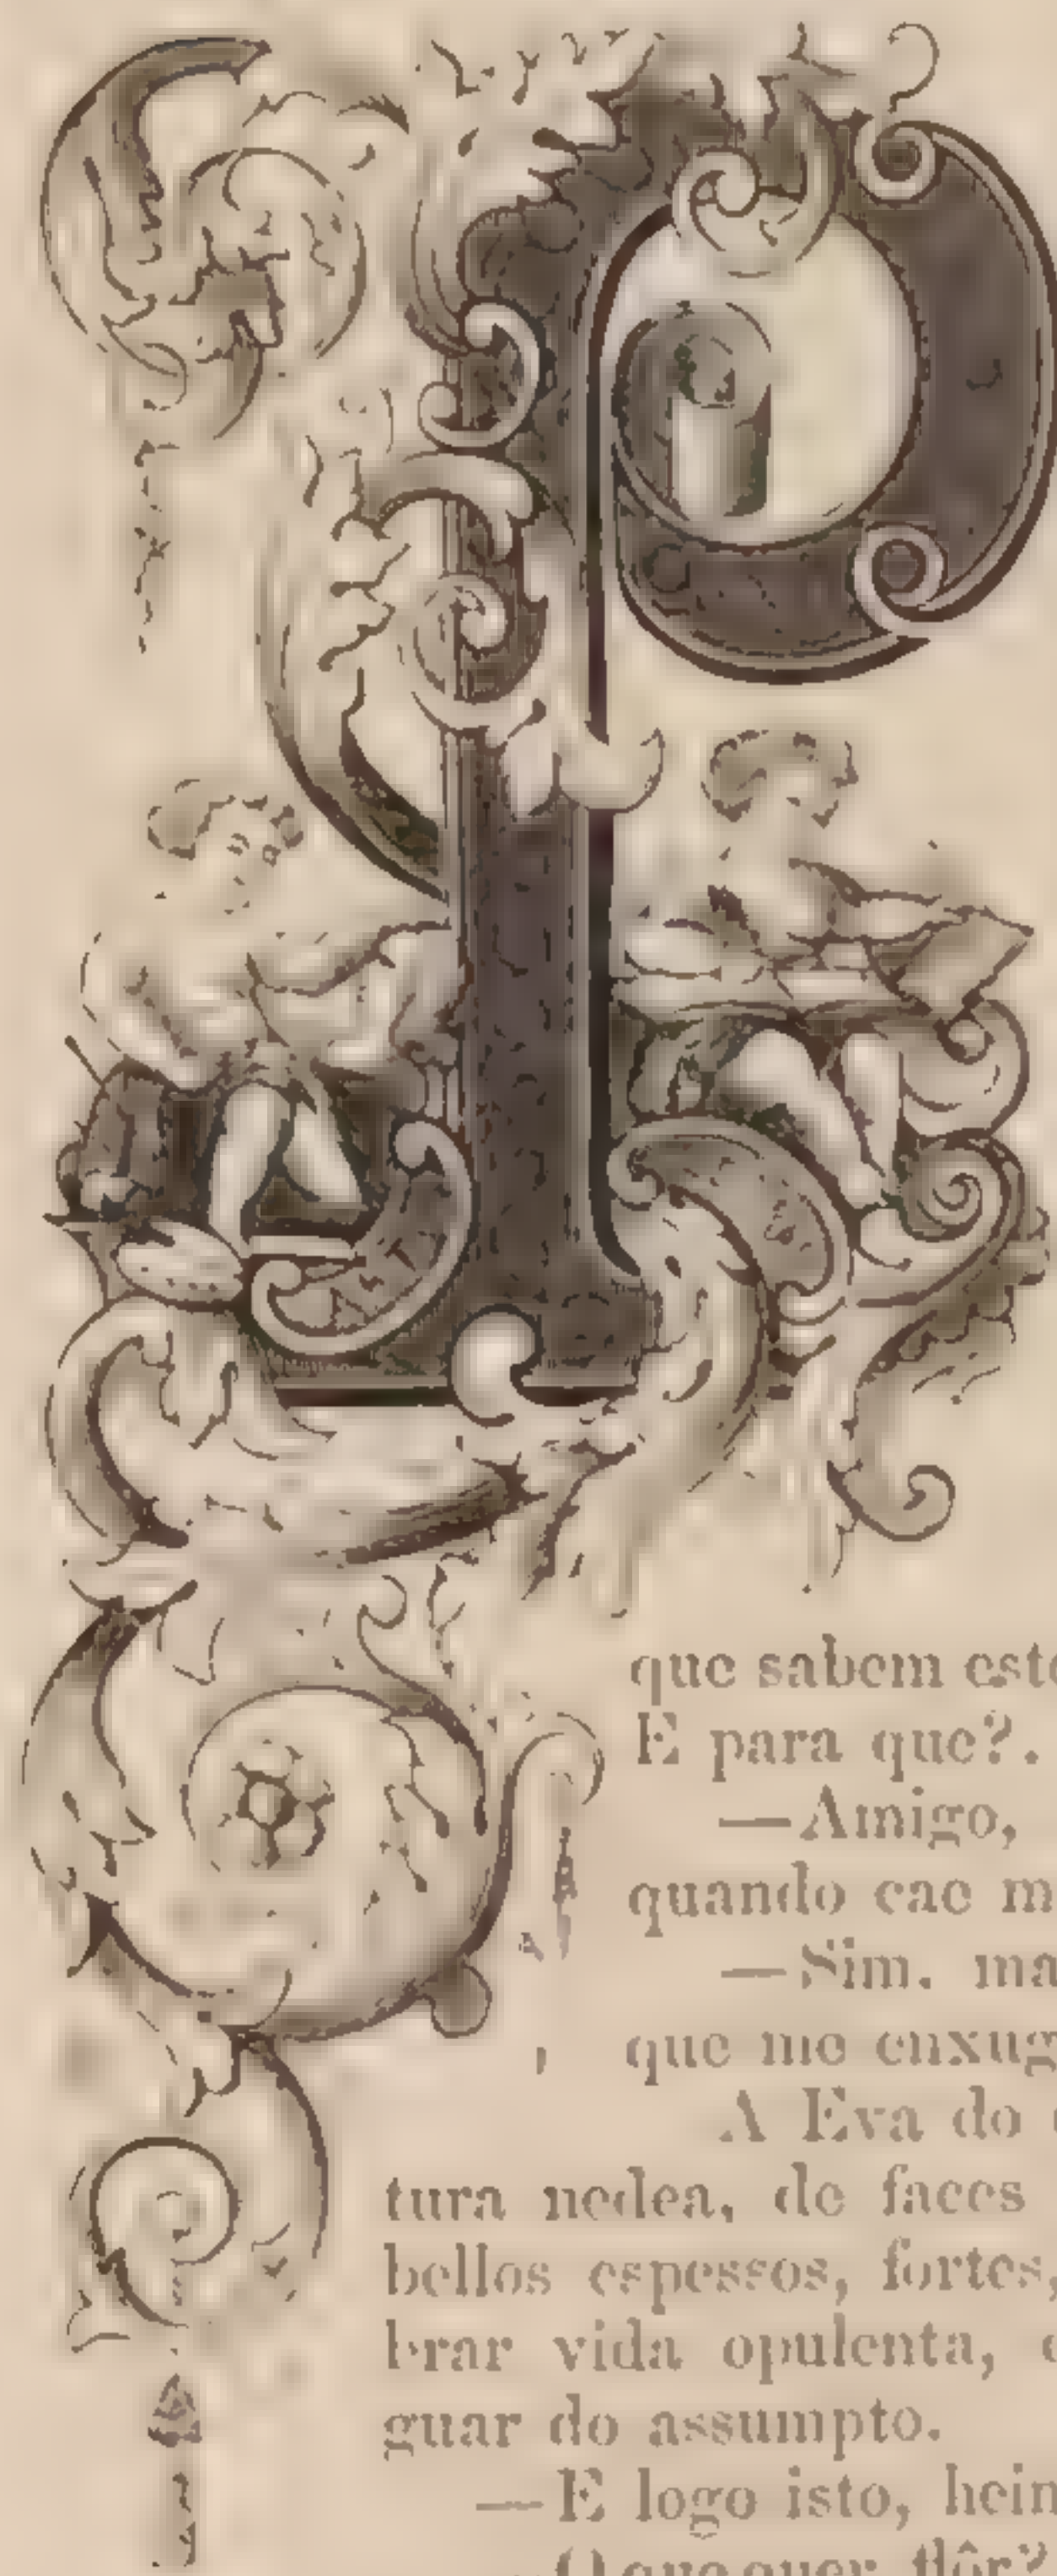 P
que sabem est
E para que?.
—Amigo,
quando cae m
—Sim. ma
que me enxug
A Eva do
tura nedea, de faces
bellos espessos, fortes,
brar vida opulenta,
guar do assumpto.
—E logo isto, hein
—O que quer flôr?